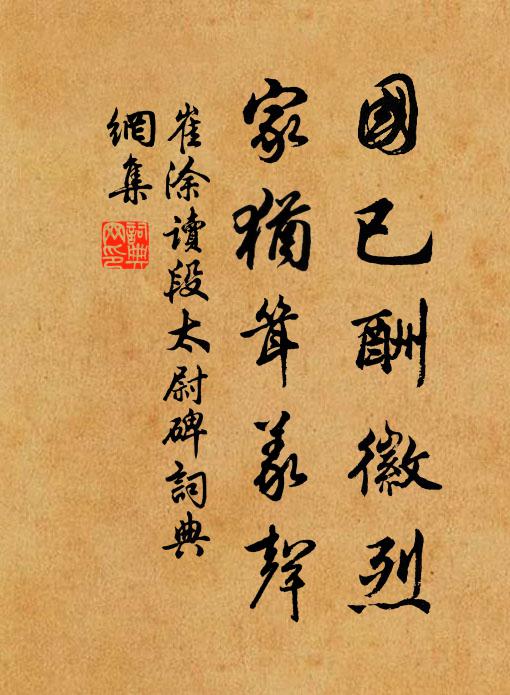 國已酬徽烈
家猶耸義聲
崔涂讀段太尉碑詞典
網集
詞典
网印